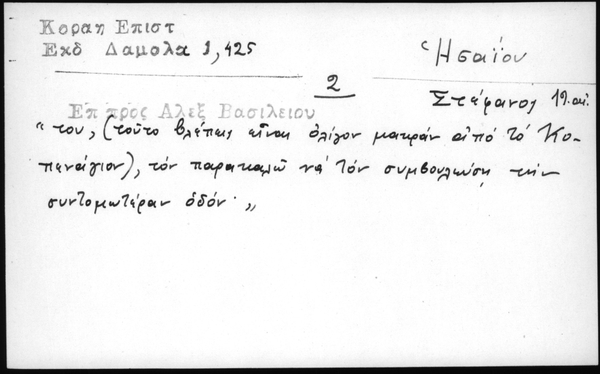 Κοραη Επιστ
Εκδ Δαμαλα 1,425
Ἡσαΐου
2
Στέφανος 19. αἰ.
Επ προς Αλεξ Βασιλειου
" του, (τοῦτο βλέπεις εἶναι ὀλίγον μακράν ἀπό τό Κο-
πενάγιον), τόν παρακαλῶ νά τόν συμβουλεύσῃ τήν
συντομωτέραν ὁδόν· „